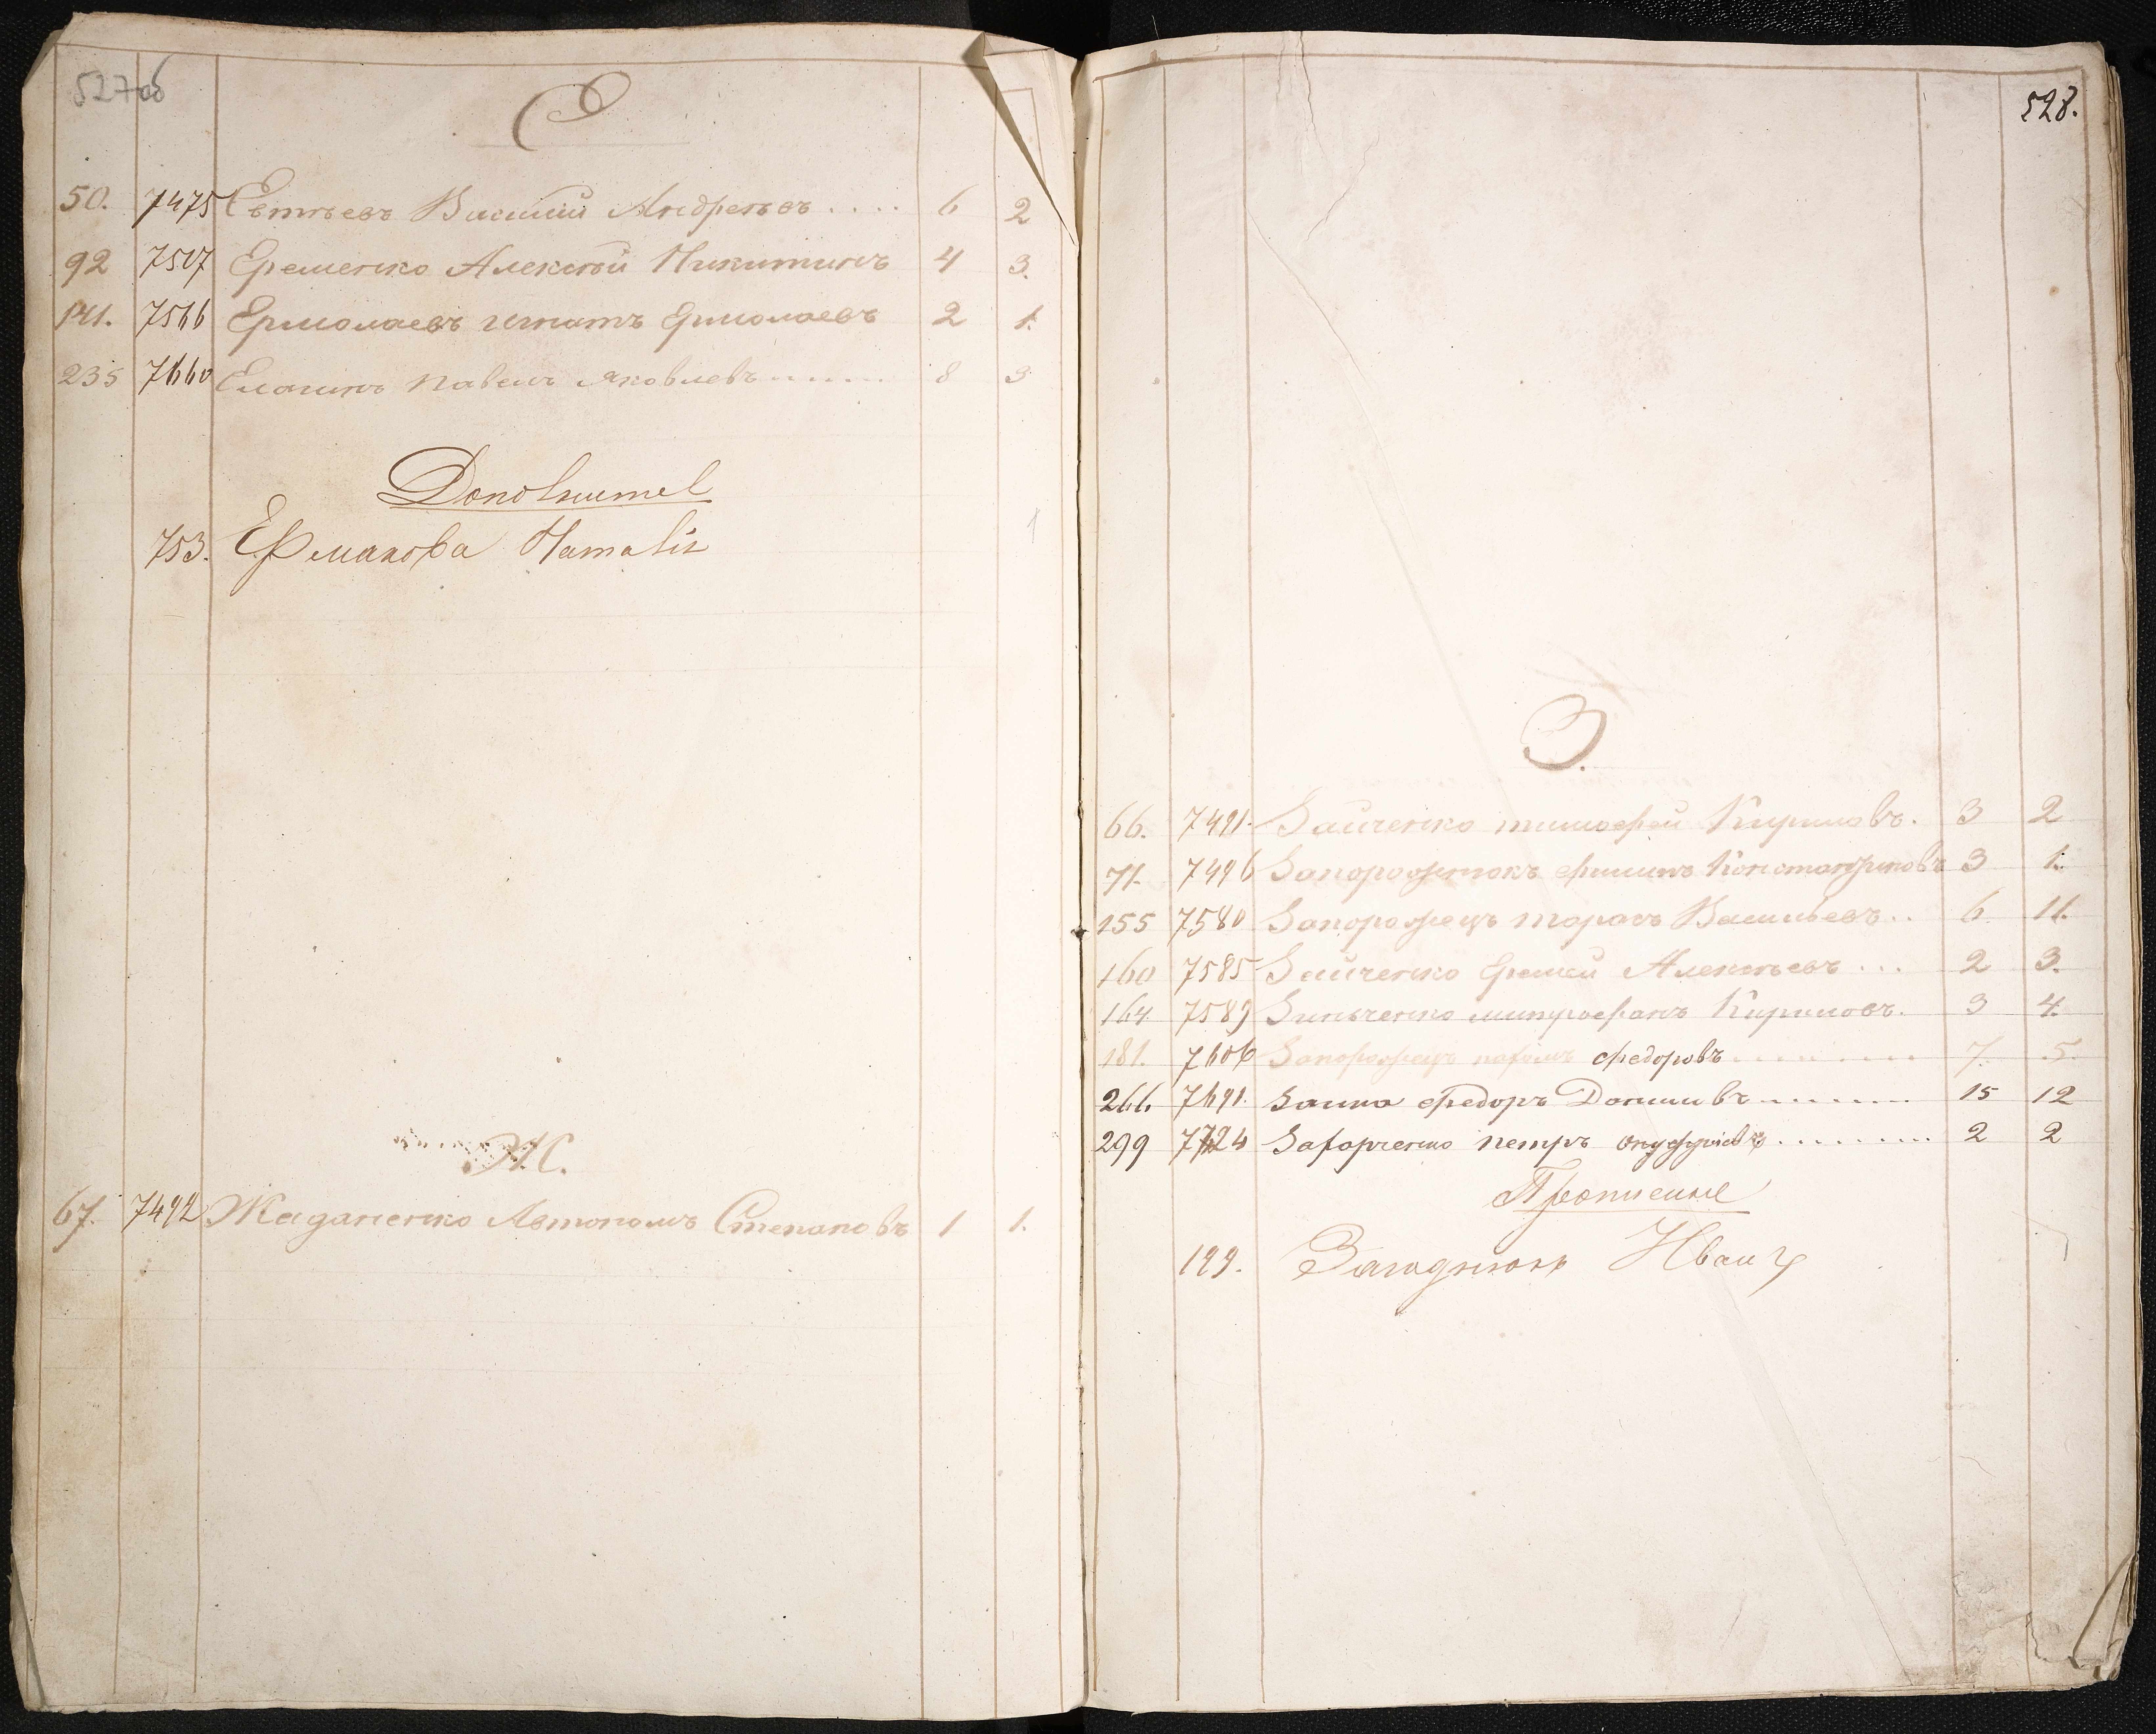 527 об
Е
50. 7475 Евтеевъ Василий Андреевъ .... 6 2
92 7507 Еременко Алексѣй Никитинъ 4 3.
141. 7566 Ермолаевъ Игнатъ Ермолаевъ 2 1.
235 7660 Елагинъ павелъ Яковлевъ ...... 8 3
Дополнител
753. Ермакова Наталія 1
Ж.
67. 7492 Жаданенко Автономъ Степановъ 1 1.
528.
З.
66. 7491. Зайченко тимофей Кириловъ. 3 2
71. 7496 Запорожнюкъ филипъ Константиновъ 3 1.
155 7580 Запорожецъ тарасъ Васильевъ.. 6. 11.
160 7585 Зайченко Еремей Алексѣевъ ... 2 3.
164. 7589 Зинченко митрофанъ Кириловъ. 3 4.
181. 7606 Запорожецъ федоровъ 7. 5.
266 7691. Заика федоръ Даниловъ 15 12
299 7724 Захарченко петръ онуфріевъ 2 2
199. Загаднюкъ Иванъ